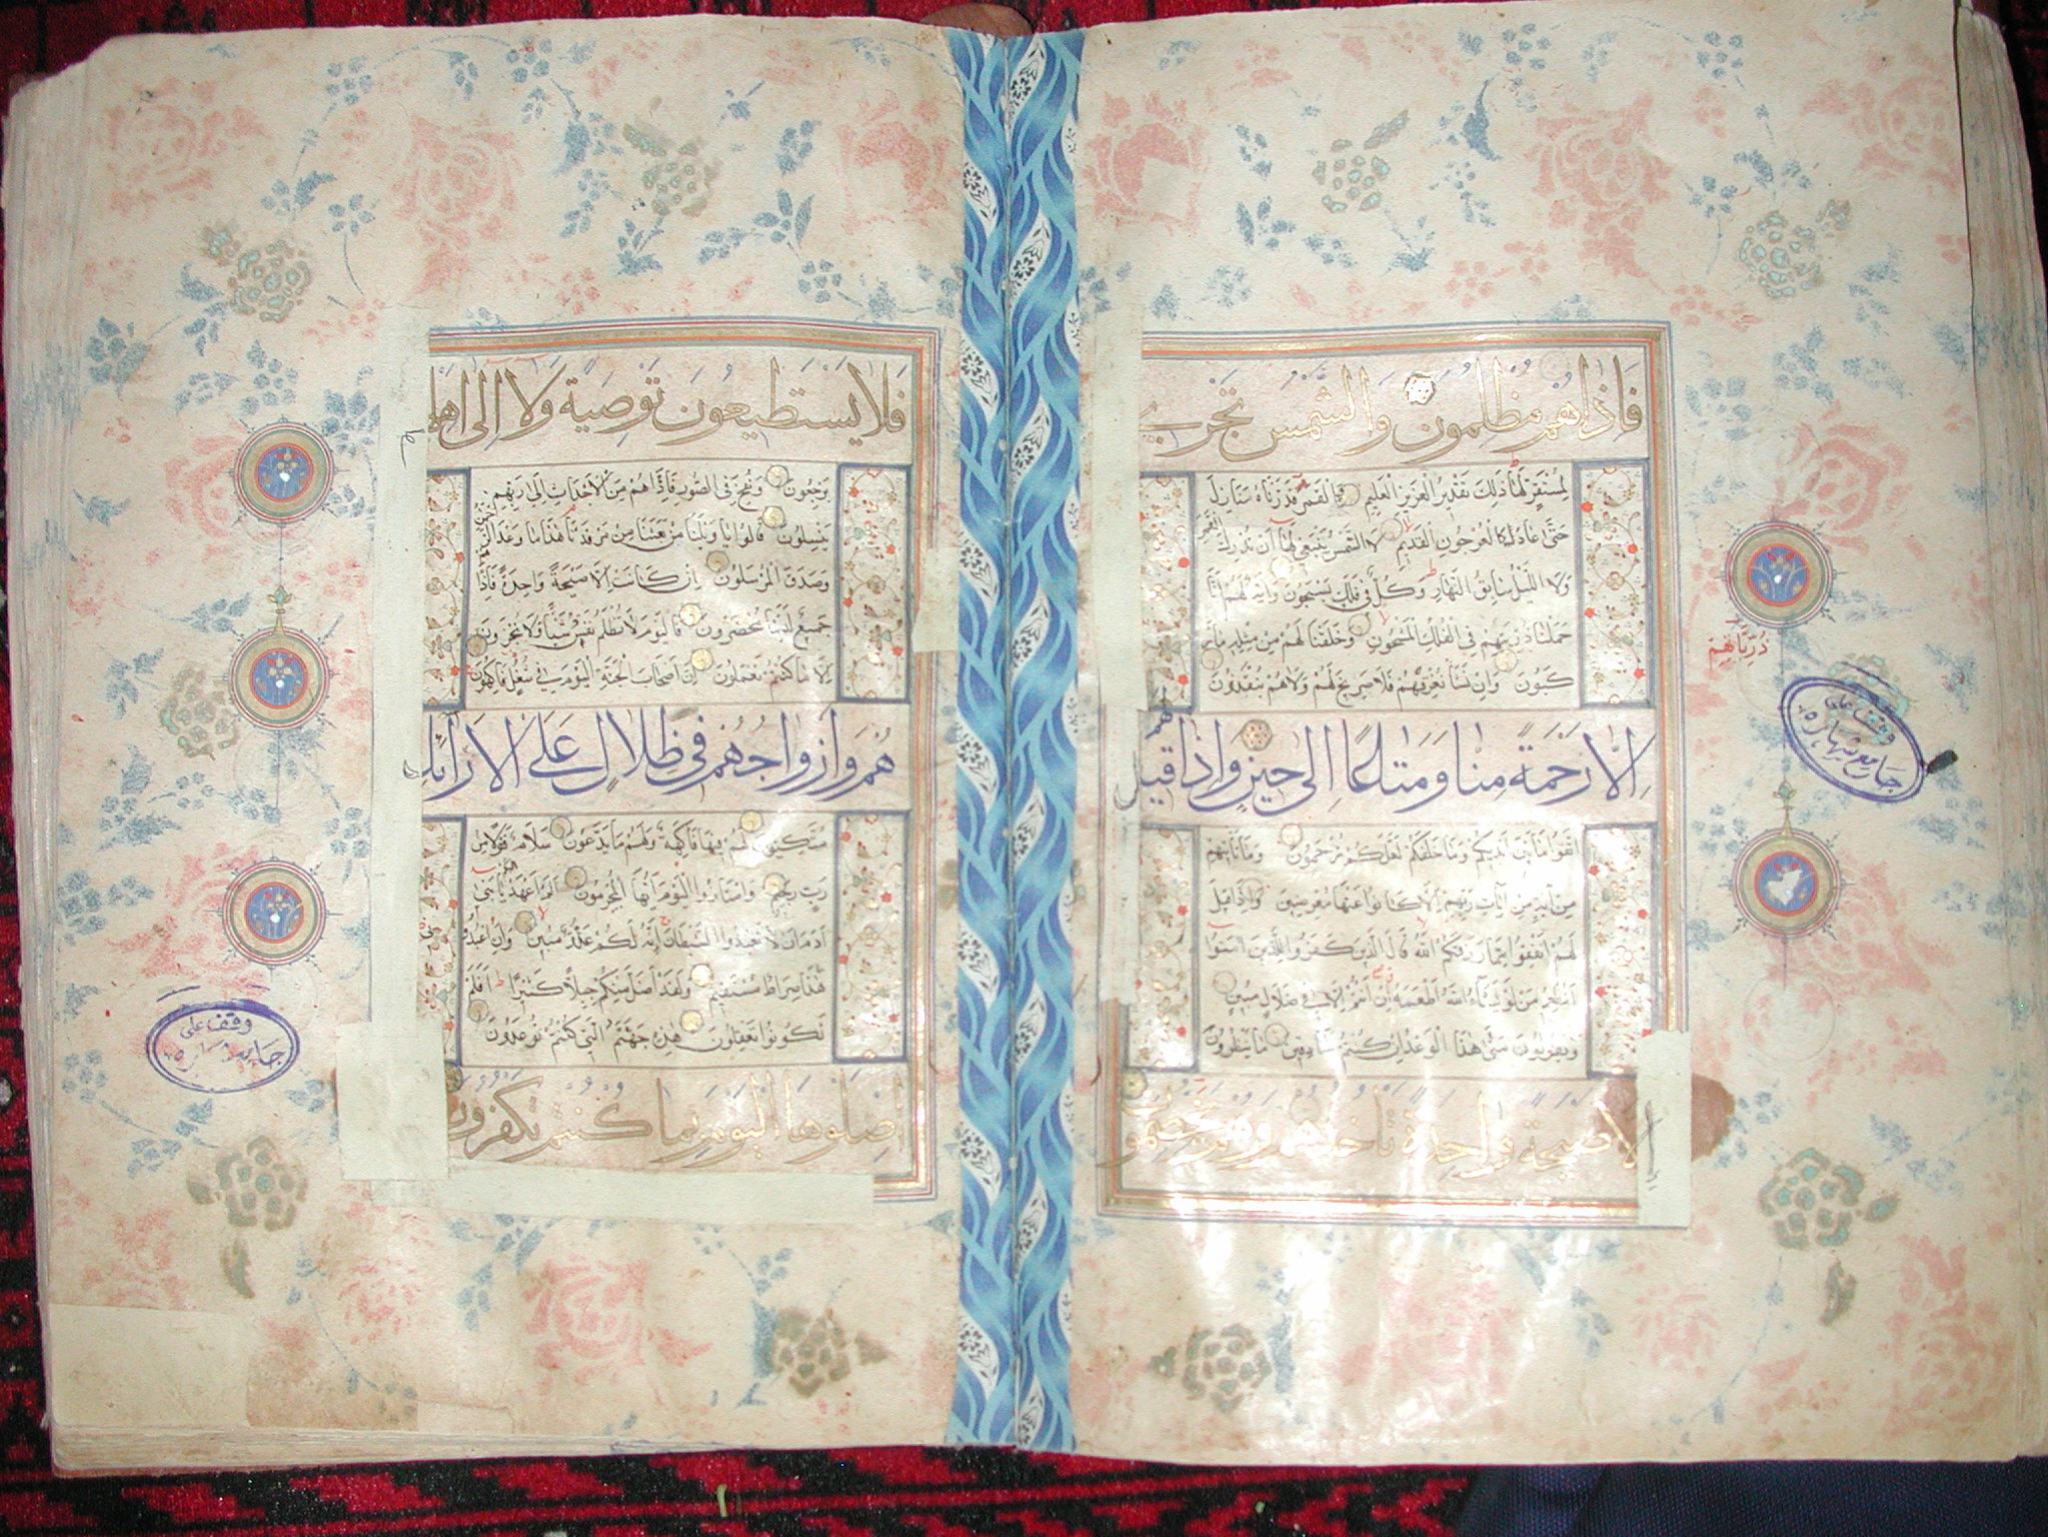 فَاِذَا هُمْ مُظْلِمُونَ وَالشَّمْسُ تَجْرِي
لِمُسْتَقَرٍّ لَهَا ذٰلِكَ تَقْدِيرُ الْعَزِيزِ الْعَلِيمِ وَالْقَمَرَ قَدَّرْنَاهُ مَنَازِلَ
حَتَّى عَادَ كَالْعُرْجُونِ الْقَدِيمِ لَا الشَّمْسُ يَنْبَغِي لَهَا أَنْ تُدْرِكَ الْقَمَرَ
وَلَا اللَّيْلُ سَابِقُ النَّهَارِ وَكُلٌّ فِي فَلَكٍ يَسْبَحُونَ وَآيَةٌ لَهُمْ أَنَّا
حَمَلْنَا ذُرِّيَّتَهُمْ فِي الْفُلْكِ الْمَشْحُونِ وَخَلَقْنَا لَهُمْ مِنْ مِثْلِهِ مَا يَرْ
كَبُونَ وَإِنْ نَشَأْ نُغْرِقْهُمْ فَلَا صَرِيخَ لَهُمْ وَلَا هُمْ يُنْقَذُونَ
اِلَّا رَحْمَةً مِنَّا وَمَتَاعًا اِلَى حِينٍ وَاِذَا قِيلَ لَهُمُ
اتَّقُوا مَا بَيْنَ أَيْدِيكُمْ وَمَا خَلْفَكُمْ لَعَلَّكُمْ تُرْحَمُونَ وَمَا تَأْتِيهِمْ
مِنْ آيَةٍ مِنْ آيَاتِ رَبِّهِمْ إِلَّا كَانُوا عَنْهَا مُعْرِضِينَ وَإِذَا قِيلَ
لَهُمْ أَنْفِقُوا مِمَّا رَزَقَكُمُ اللهُ قَالَ الَّذِينَ كَفَرُوا لِلَّذِينَ آمَنُوا
أَنُطْعِمُ مَنْ لَوْ يَشَاءُ اللهُ أَطْعَمَهُ إِنْ أَنْتُمْ إِلَّا فِي ضَلَالٍ مُبِينٍ
وَيَقُولُونَ مَتَى هٰذَا الْوَعْدُ إِنْ كُنْتُمْ صَادِقِينَ مَا يَنْظُرُونَ
اِلَّا صَيْحَةً وَاحِدَةً تَأْخُذُهُمْ وَهُمْ يَخِصِّمُونَ
ذُرِّيَّاتِهِمْ
وقف على
جامع
فَلَا يَسْتَطِيعُونَ تَوْصِيَةً وَلَا اِلَى اَهْلِ
يَرْجِعُونَ وَنُفِخَ فِي الصُّورِ فَإِذَا هُمْ مِنَ الْأَجْدَاثِ إِلَى رَبِّهِمْ
يَنْسِلُونَ قَالُوا يَا وَيْلَنَا مَنْ بَعَثَنَا مِنْ مَرْقَدِنَا هٰذَا مَا وَعَدَ الرَّحْمٰنُ
وَصَدَقَ الْمُرْسَلُونَ إِنْ كَانَتْ إِلَّا صَيْحَةً وَاحِدَةً فَإِذَا هُمْ
جَمِيعٌ لَدَيْنَا مُحْضَرُونَ فَالْيَوْمَ لَا تُظْلَمُ نَفْسٌ شَيْئًا وَلَا تُجْزَوْنَ
إِلَّا مَا كُنْتُمْ تَعْمَلُونَ إِنَّ أَصْحَابَ الْجَنَّةِ الْيَوْمَ فِي شُغُلٍ فَاكِهُونَ
هُمْ وَاَزْوَاجُهُمْ فِي ظِلَالٍ عَلَى الْاَرَائِكِ
مُتَّكِئُونَ لَهُمْ فِيهَا فَاكِهَةٌ وَلَهُمْ مَا يَدَّعُونَ سَلَامٌ قَوْلًا مِنْ
رَبٍّ رَحِيمٍ وَامْتَازُوا الْيَوْمَ أَيُّهَا الْمُجْرِمُونَ أَلَمْ أَعْهَدْ إِلَيْكُمْ يَا بَنِي
آدَمَ أَنْ لَا تَعْبُدُوا الشَّيْطَانَ إِنَّهُ لَكُمْ عَدُوٌّ مُبِينٌ وَأَنِ اعْبُدُونِي
هٰذَا صِرَاطٌ مُسْتَقِيمٌ وَلَقَدْ أَضَلَّ مِنْكُمْ جِبِلًّا كَثِيرًا أَفَلَمْ
تَكُونُوا تَعْقِلُونَ هٰذِهِ جَهَنَّمُ الَّتِي كُنْتُمْ تُوعَدُونَ
اِصْلَوْهَا الْيَوْمَ بِمَا كُنْتُمْ تَكْفُرُونَ
وقف على